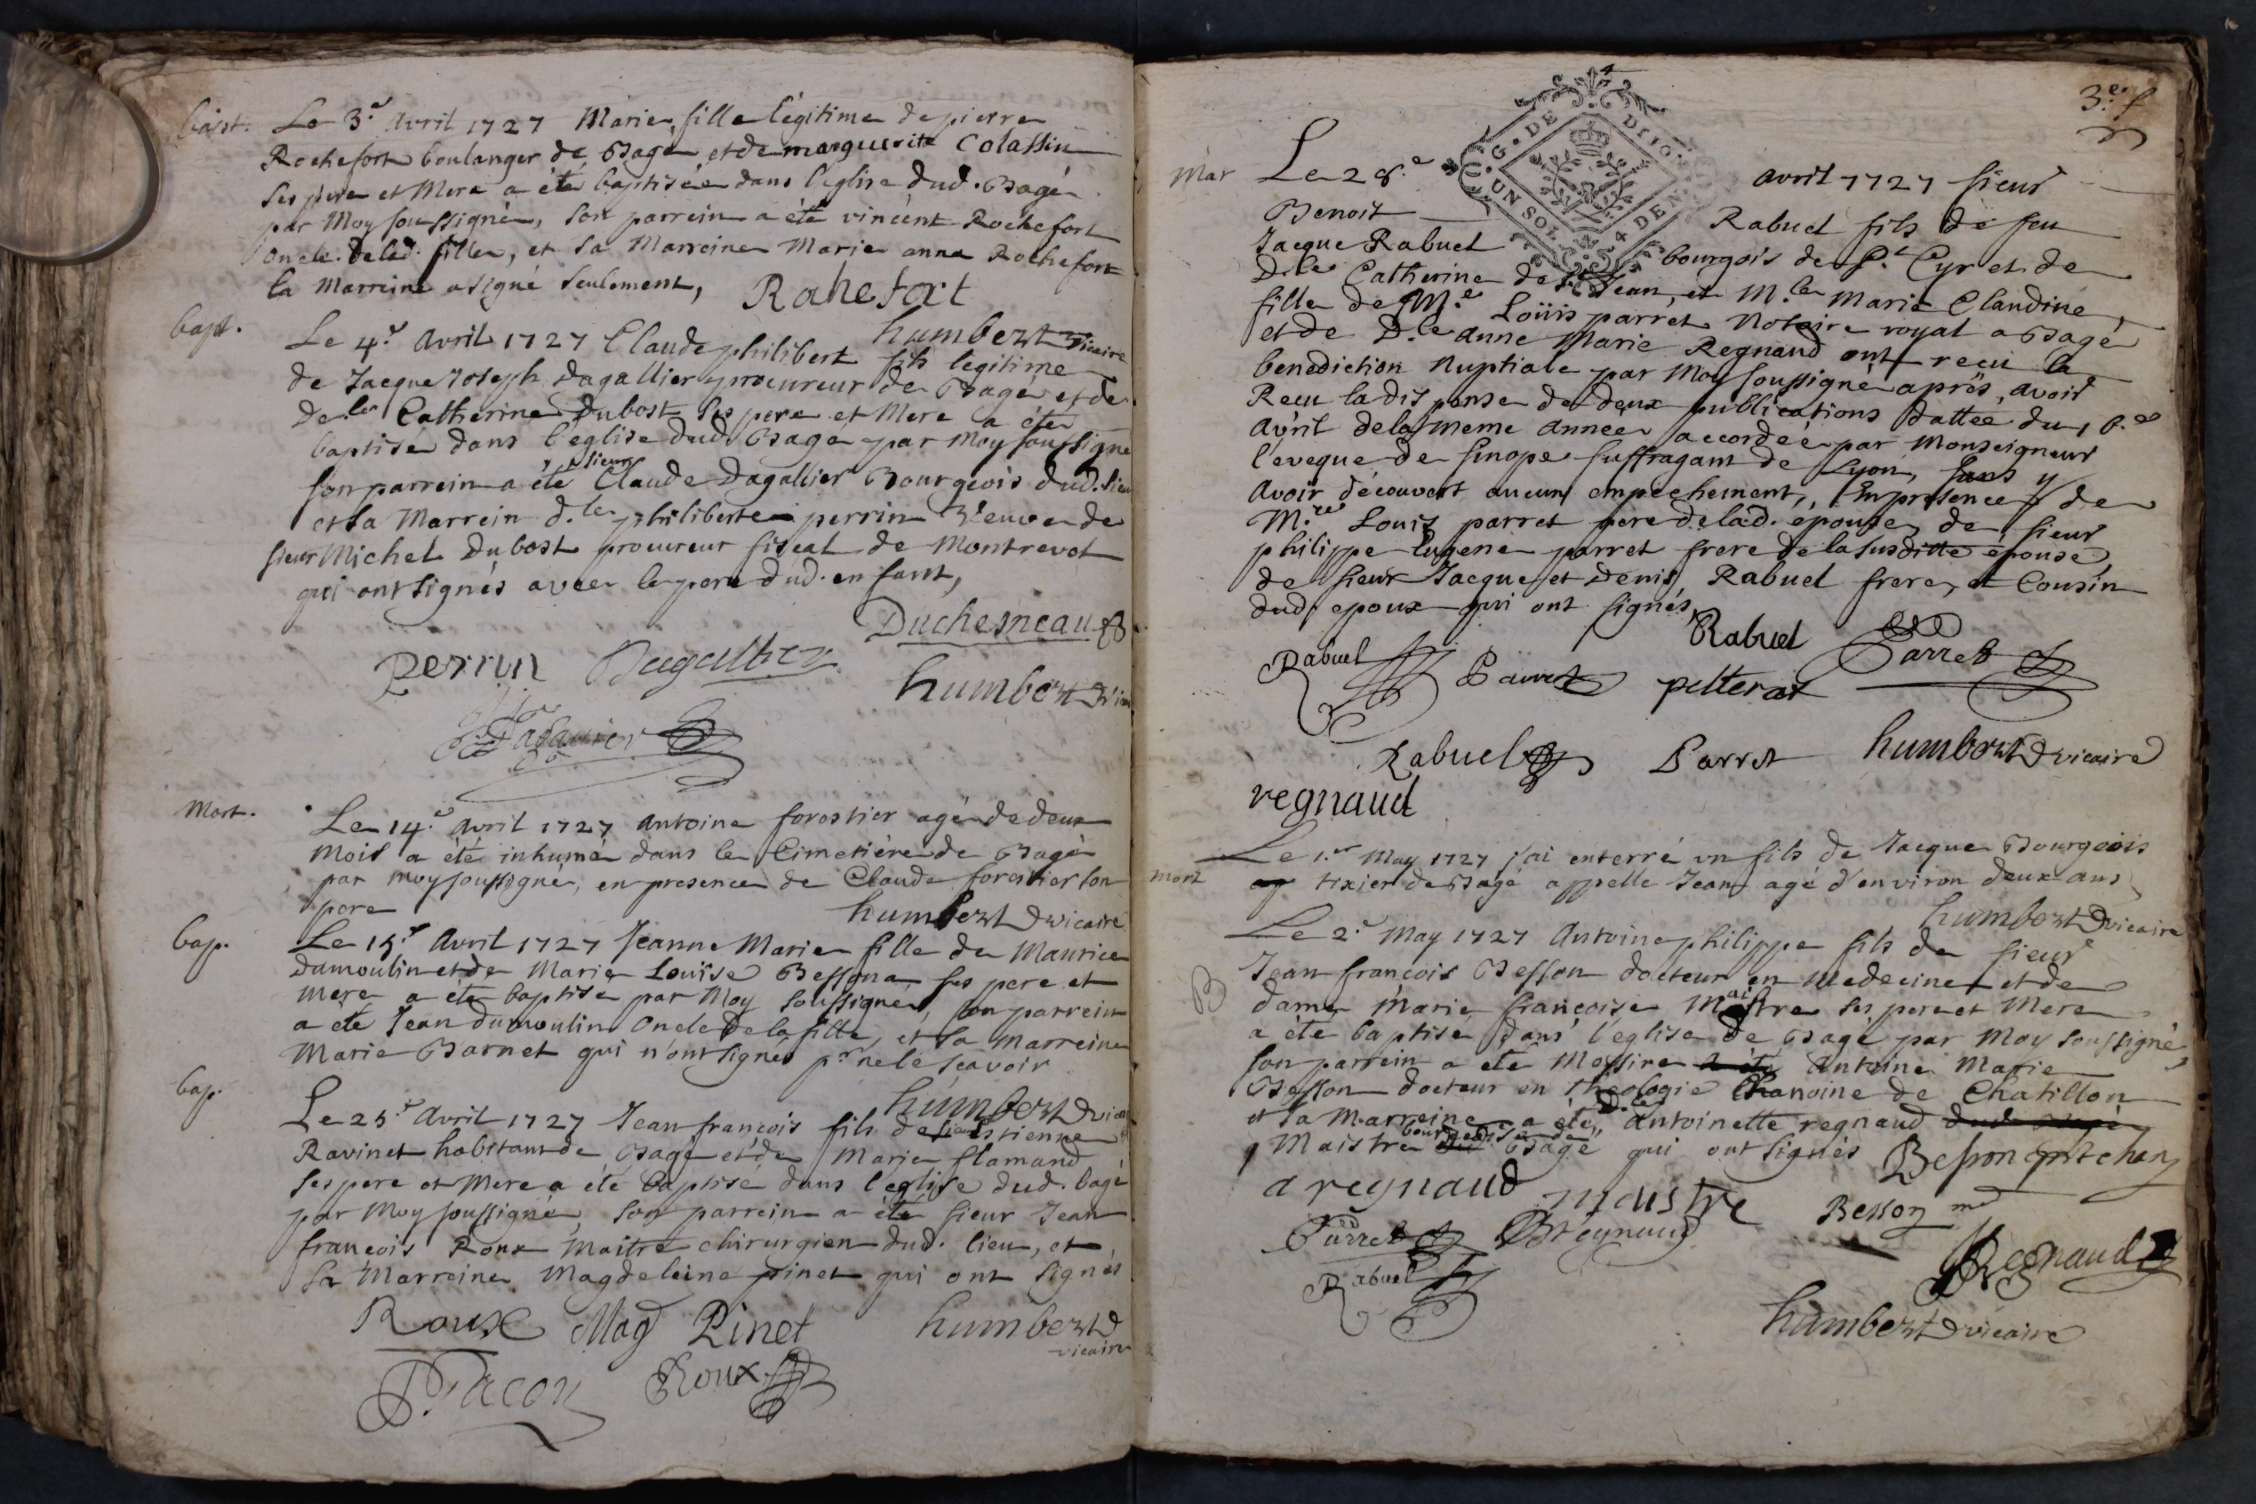 bapt. Le 3.e avril 1727 Marie, fille légitime de pierre
Rochefort boulanger de Bagé et de marguerite Colassin
ses pere et Mere a été baptisée dans l'eglise dud. Bagé
par Moy soussigné, son parrein a été vincent Rochefort
oncle de lad. fille, et sa Marreine Marie anne Rochefort
la Marreine a signé seulement,
Rohefort
humbert vicaire
bapt.
Le 4.e avril 1727 Claude philibert fils legitime
de Jacque Joseph Dagallier procureur de Bagé et de
de.lle Catherine Dubost ses pere et Mere a été
baptisé dans l'eglise dud. Bagé par Moy soussigné
son parrein a été sieur Claude Dagallier Bourgeois dud. lieu
et sa Marrein d.lle philiberte perrin veuve de
sieur Michel Dubost procureur fiscal de Montrevot
qui ont signés avec le pere dud. enfant,
Duchesneau
Perrin Dagallier
humbert
Mort.
Le 14.e avril 1727 antoine forestier agé de deux
Mois a été inhumé dans le Cimetiére de Bagé
par moy soussigné, en presence de Claude forestier son
pere
humbert vicaire
bap.
Le 15.e Avril 1727 Jeanne Marie fille de Maurice
Dumoulin et de Marie Louïse Bessona ses pere et
mere a été baptisé par Moy soussigné, son parrein
a eté Jean dumoulin Oncle de la fille, et sa marreine
Marie Barnet qui n'ont signés p.r ne le scavoir
humbert
bap.
Le 25.e avril 1727 Jean françois fils de estienne
Ravinet habitant de Bagé et de Marie flamand
ses pere et Mere a été baptisé dans l'eglise dud. bagé
par Moy soussigné, son parrein a été sieur Jean
françois Roux Maitre chirurgien dud. lieu, et
sa Marreine Magdeleine pinet qui ont signés
Roux Mag Pinet humbert
vicaire
Roux
3.e f
G. DE DIJON
UN SOL 4 DEN
Mar Le 28.e avril 1727 sieur
Benoit Rabuel fils de feu
Jacque Rabuel bourgois de S.t Cyr et de
D.lle Catherine de S.t Jean, et M.lle Marie Claudine
fille de M.e Loüis parret Notaire royal a Bagé
et de D.lle anne Marie Regnaud ont recu la
benediction Nuptiale par Moy soussigné aprés, avoir
Recu la dispense de deux publications dattée du
avril de la meme année accordée par Monseigneur
l'eveque de sinope suffragant de Lyon, sans y
avoir découvert aucun empechement, En presence de
M.re Louis parret pere de lad. épouse, de sieur
philippe Eugene parret frere de la susditte épouse,
de sieur Jacque et Denis Rabuel frere, et Cousin
dud. epoux qui ont signés,
Rabuel
Rabuel Parret pelterat Parret
Rabuel Parret humbert vicaire
regnaud
Le 1.er May 1727 j'ai enterré un fils de Jacque Bourgeois
mort tixier de Bagé appelle Jean agé d'environ deux ans
humbert vicaire
Le 2.e May 1727 Antoine philippe fils de sieur
Jean françois Besson docteur en medecine et de
B dame marie françoise Maistre ses pere et Mere
a été baptisé dans l'eglise de Bagé par Moy soussigné,
son parrein a eté Messire a été Antoine Marie
Besson docteur en theologie Chanoine de Chatillon
et sa Marreine a été D.lle Antoinette regnaud
Maistre bourgeois de Bagé qui ont signés
Besson
a regnaud maistre Besson
Parret Regnaud
Regnaud
Rabuel
humbert vicaire